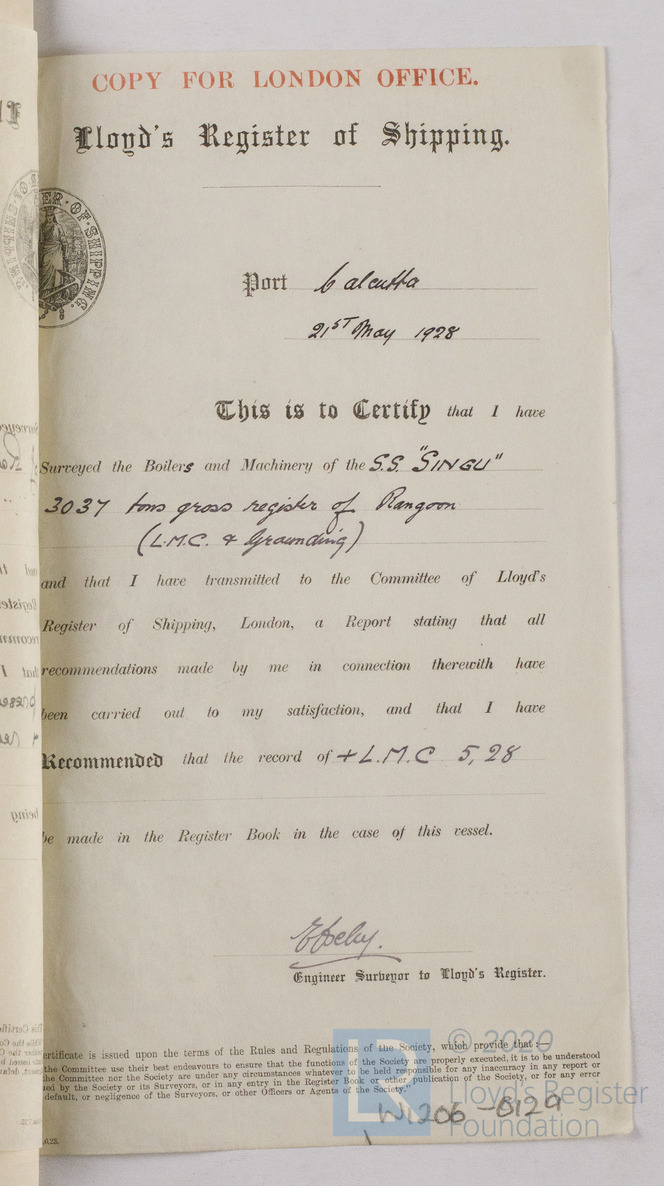 COPY FOR LONDON OFFICE.
Lloyd's Register of Shipping.
ER·OF·SHIPPING.
Port Calcutta
21ST May 1928
This is to Certify that I have
Surveyed the Boilers and Machinery of the S.S. "SINGU"
3037 tons gross register of Rangoon
(L.M.C. & Grounding)
and that I have transmitted to the Committee of Lloyd's
Register of Shipping, London, a Report stating that all
recommendations made by me in connection therewith have
been carried out to my satisfaction, and that I have
Recommended that the record of + L.M.C 5,28
be made in the Register Book in the case of this vessel.
Engineer Surveyor to Lloyd's Register.
ertificate is issued upon the terms of the Rules and Regulations of the Society, which provide that:—
the Committee use their best endeavours to ensure that the functions of the Society are properly executed, it is to be understood
he Committee nor the Society are under any circumstances whatever to be held responsible for any inaccuracy in any report or
ed by the Society or its Surveyors, or in any entry in the Register Book or other publication of the Society, or for any error
default, or negligence of the Surveyors, or other Officers or Agents of the Society."
W1206-0129
© 2020
Lloyd's Register
Foundation